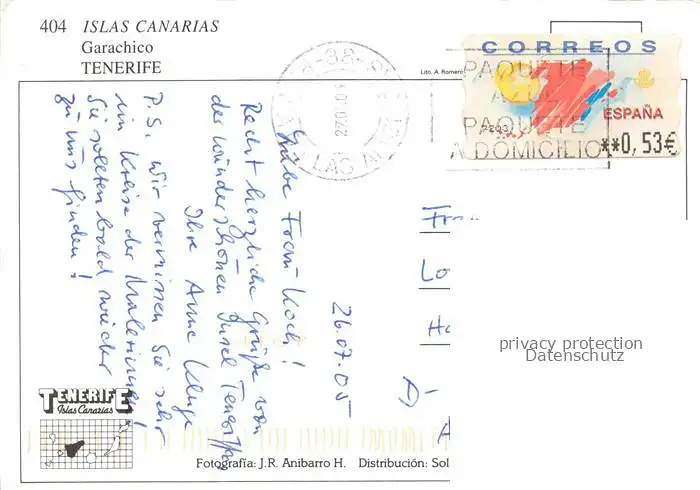 404 ISLAS CANARIAS
Garachico
TENERIFE
Lito. A. Romero
CORREOS
ESPAÑA
**0,53€
PAQUETE
AZUL
PAQUETE
A DOMICILIO
26.07.05
Liebe Frau Koch!
Recht herzliche Grüße von
der wunderschönen Insel Teneriffa
Ihre Anne Kluge
P.S. Wir vermissen Sie sehr
im Kreise der Malerinnen!
Sie sollten bald wieder
zu uns finden!
privacy protection
Datenschutz
TENERIFE
Islas Canarias
Fotografía: J.R. Anibarro H. Distribución: Sol